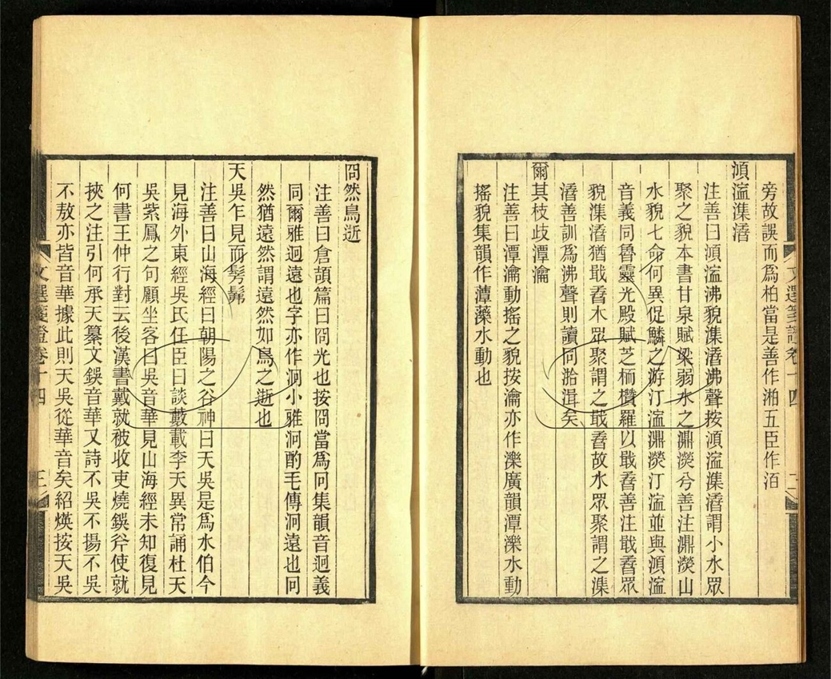 旁故誤而為柏當是善作湘五臣作洦
澒溶潗濳
注善曰澒溶沸貌潗濳沸聲按澒溶潗濳謂小水眾
聚之貌本書甘泉賦梁弱水之濎濙兮善注濎濙小
水貌七命何異促鱗之游汀濙濎濙汀濙並與澒溶
音義同魯靈光殿賦芝栭欑羅以戢孴善注戢孴眾
貌潗濳猶戢孴木眾聚謂之戢孴故水眾聚謂之潗
濳善訓為沸聲則讀同湁湒矣
爾其枝歧潭瀹
注善曰潭瀹動搖之貌按瀹亦作濼廣韻潭濼水動
搖貌集韻作藫藥水動也
文選箋證卷十四
二
冏然鳥逝
注善曰倉頡篇曰冏光也按冏當為何集韻音迥義
同爾雅迥遠也字亦作泂小雅泂酌毛傳泂遠也冋
然猶遠然謂遠然如鳥之逝也
天吳乍見而髣髴
注善曰山海經曰朝陽之谷神曰天吳是為水伯今
見海外東經吳氏任臣曰談藪載李天異常誦杜天
吳紫鳳之句顧坐客曰吳音華見山海經未知復見
何書王仲行對云後漢書戴就被收吏燒鋘斧使就
挾之注引何承天纂文鋘音華又詩不吳不揚不吳
不敖亦皆音華據此則天吳從華音矣紹煐按天吳
文選箋證卷十四
三